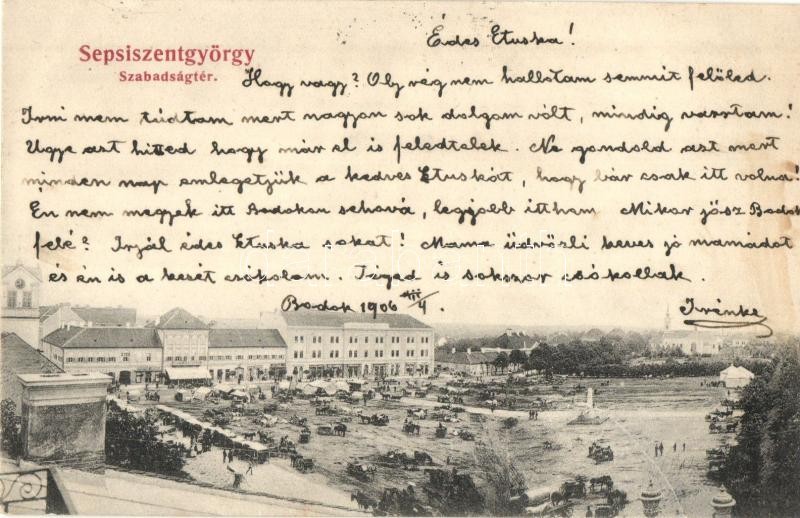 Sepsiszentgyörgy
Szabadságtér.
Édes Etuska!
Hogy vagy? Oly rég nem hallotam semmit felőled.
Irni nem tudtam mert nagyon sok dolgom vólt, mindig vartam!
Ugye ast hitted hogy már el is feledtelek. Ne gondold ast mert
minden nap emlegetjük a kedves Etuskát, hogy bár csak itt volna!
Én nem megyek itt Bodokon sehová, legjobb itthon Mikor jösz Bodok
felé? Irjál édes Etuska sokat! Mama üdvözli keves jó mamádat
és én is a kesét csókolom. Tzged is sokszor csókollak.
Bodok 1906 VII/4. Irénke